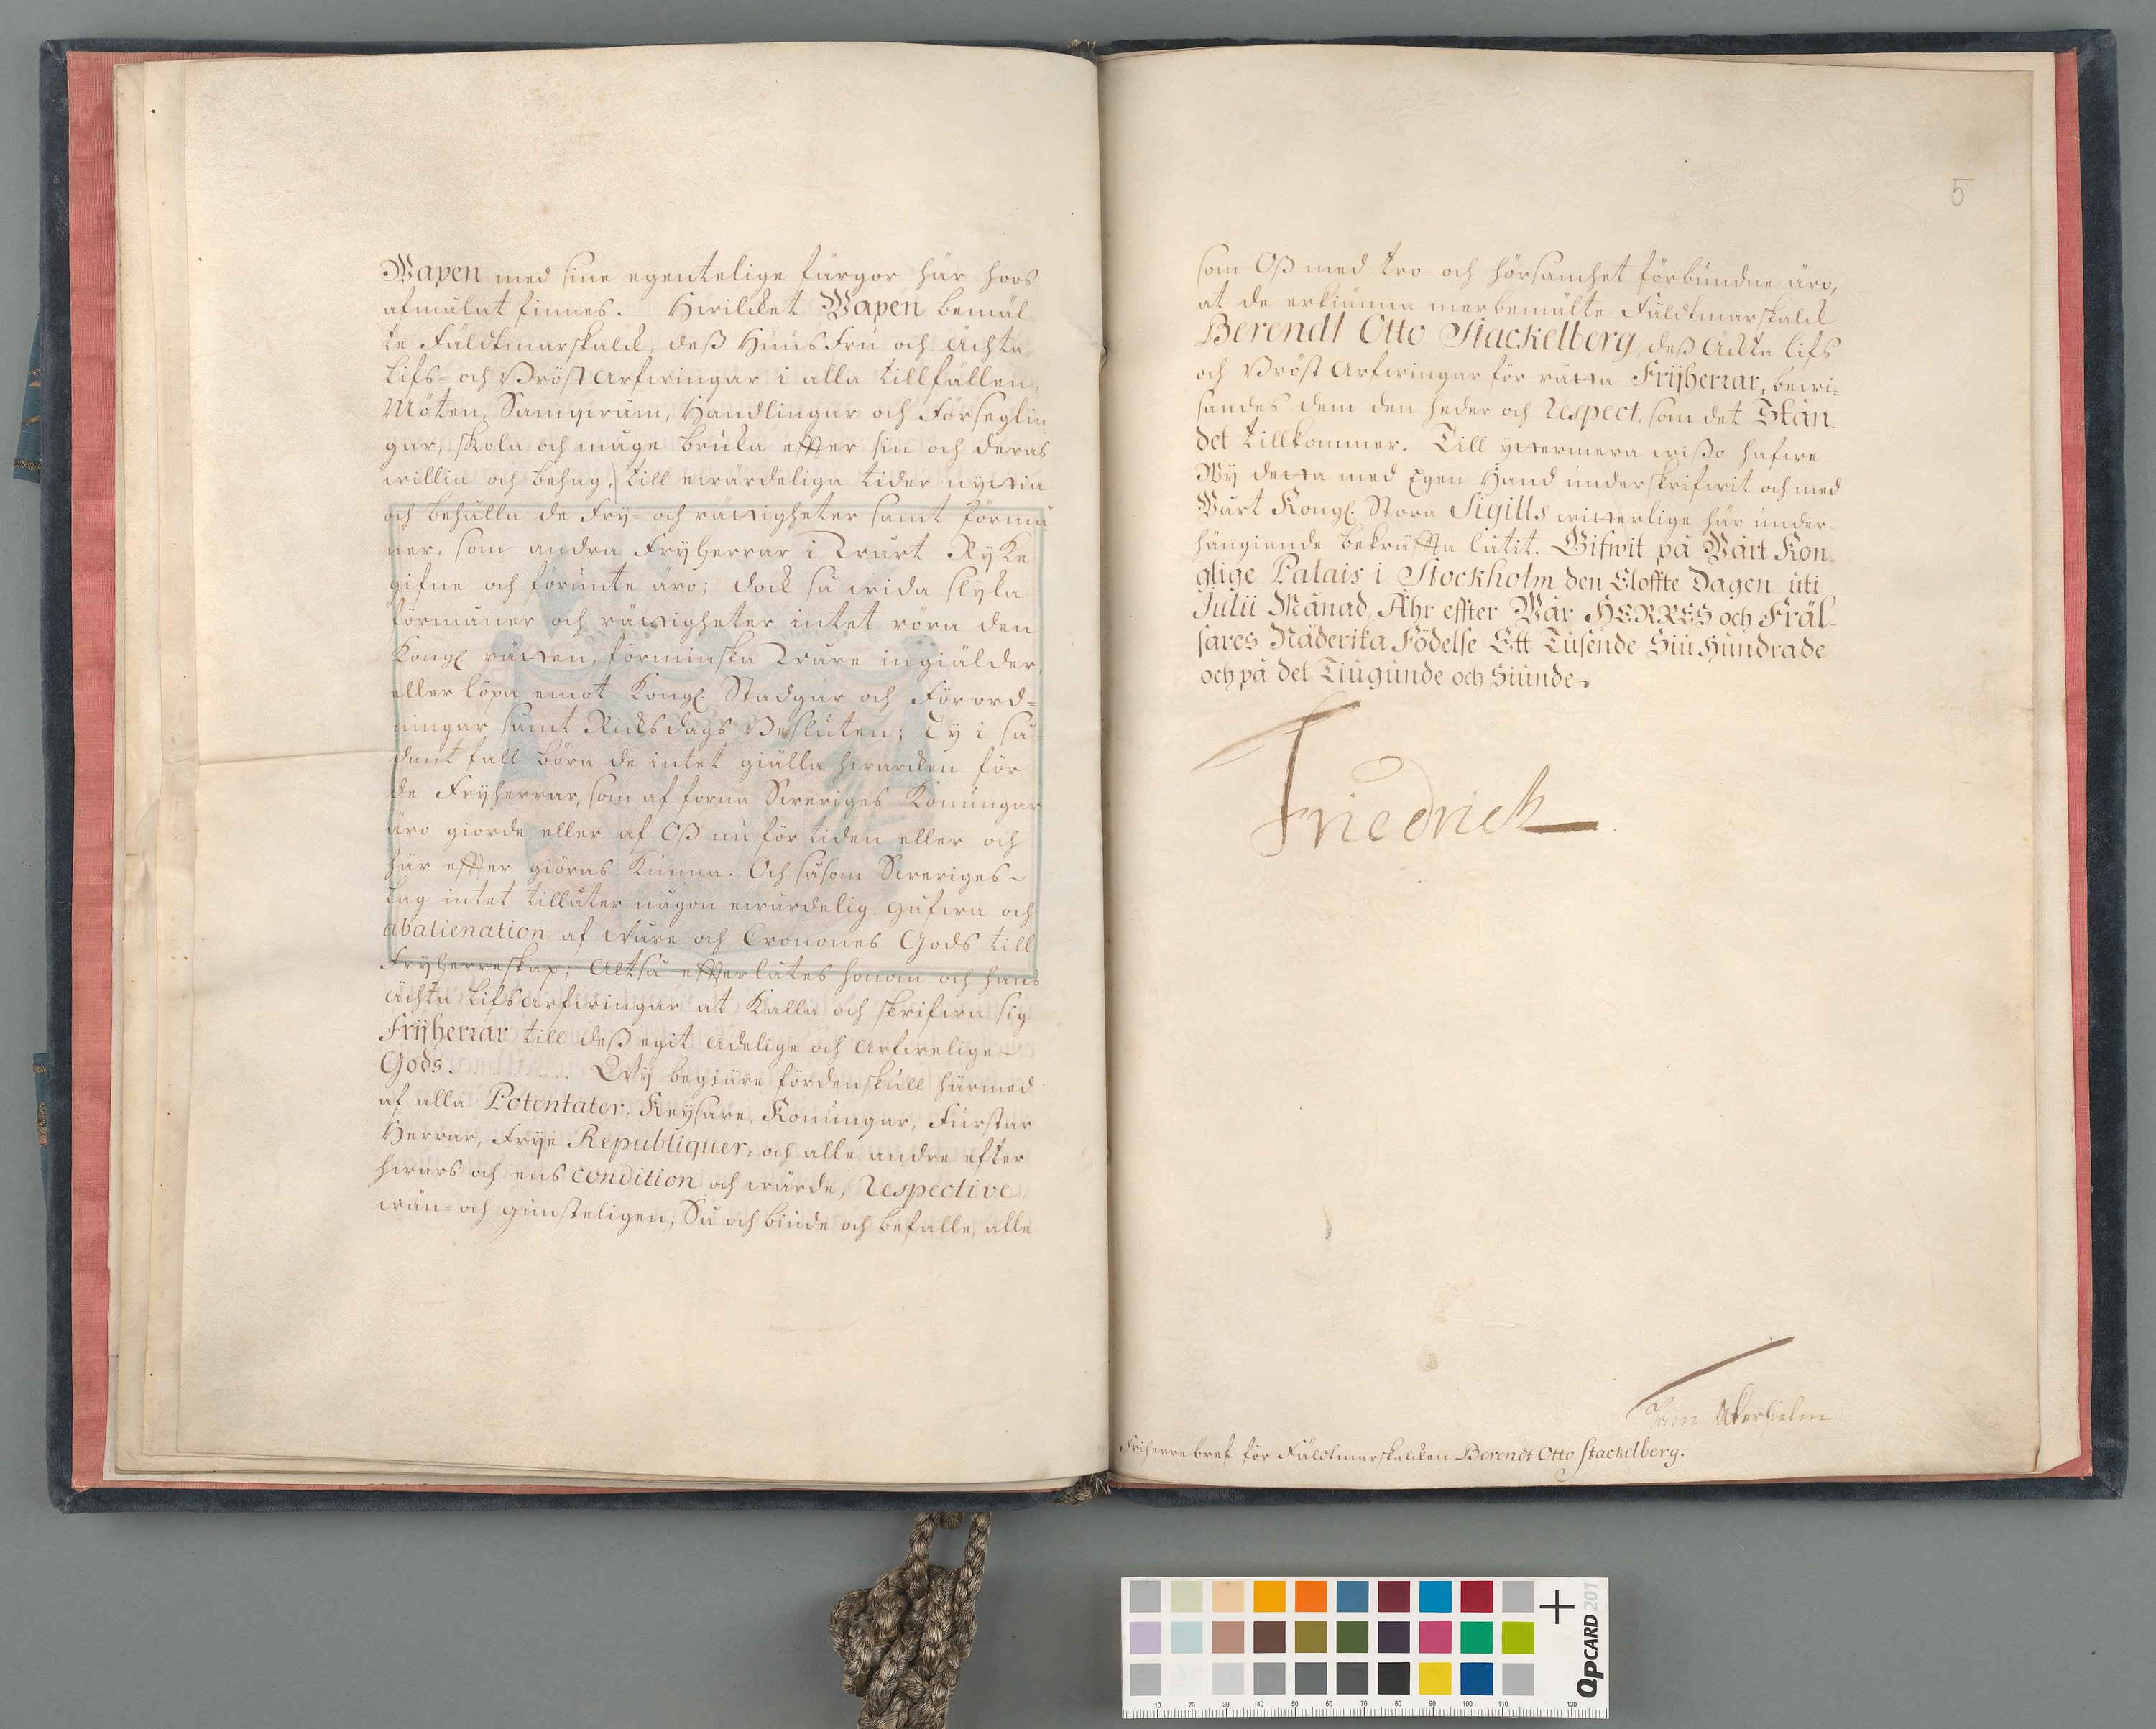 Wapen med sine egentelige färgor här hoos
afmålat finnes. Hwilcket Wapen bemäl
te Fäldtmarskalck, deß HuusFru och Ächta
Lifs- och Bröst Arfwingar i alla tillfällen,
Möten, Samqwäm, Handlingar och Förseglin
gar, skola och måge bruka effter sin och deras
willia och behag, till ewärdeliga tider nyttia
och behålla de Fry- och rättigheter samt förmå
ner, som andra Fryherrar i Wårt Ryke
gifne och förunte äro; dock så wida slyka
förmåner och rättigheter intet röra den
Kongl rätten, förminska Wåre ingiälder,
eller löpa emot Kongl Stadgar och Förord-
ningar samt Ricksdags Besluten; Ty i så-
dant fall böra de intet giälla hwarcken för
de Fryherrar, som af forna Sweriges Konungar
äro giorde eller af Oß nu för tiden eller och
här effter giöras Kunna. Och såsom Sweriges
Lag intet tillåter någon ewärdelig gåfwa och
abalienation af Wåre och Cronones Gods till
Fryherreskap; Altså effterlåtes honom och hans
Ächta Lifs Arfwingar at Kalla och skrifwa sig
Frijherrar till deß egit Adelige och Arfwelige
Gods. Wij begiäre fördenskull härmed
af alla Potentater, Keysare, Konungar, Furstar
Herrar, Frye Republiquer, och alle andre efter
hwars och ens condition och wärde, Respective
wän- och gunsteligen; Så och biude och befalle, alle
5
som Oß med tro- och hörsamhet förbundne äro,
at de erkiänna merbemälte Fäldtmarskalck
Berendt Otto Stackelberg, deß Äckta Lifs
och Bröst Arfwingar för rätta Frijherrar, bewi-
sandes dem den heder och Respect, som det Stån-
det tillkommer. Till yttermera wißo hafwe
Wy detta med Egen Hand underskrifwit och med
Wårt Kongl. Stora Sigills witterlige här under-
hängiande bekräffta låtit. Gifwit på Wårt Kon-
glige Palais i Stockholm den Eloffte Dagen uti
Julii Månad, Åhr effter Wår HERRES och Fräl-
sares Nåderika Födelse Ett Tusende Siu Hundrade
och på det Tiugunde och Siunde.
Friedrich
Åkerhielm
Friherre bref för Fäldtmarskalcken Berendt Otto Stackelberg.
10 20 30 40 50 60 70 80 90 100 110 130
OpCARD201